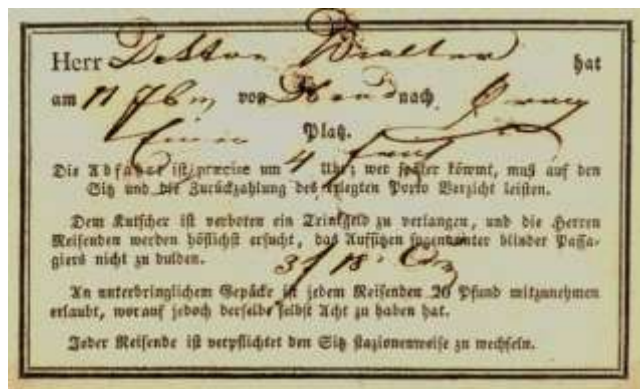 Herr Doktor hat
am 11 7b von nach
Einen Platz.
Die Abfahrt ist præcise um 4 Uhr; wer später kömmt, muß auf den
Sitz und die Zurückzahlung des erlegten Porto Verzicht leisten.
Dem Kutscher ist verboten ein Trinkgeld zu verlangen, und die Herren
Reisenden werden höflichst ersucht, das Aufsitzen sogenannter blinder Passa-
giers nicht zu dulden.
An unterbringlichem Gepäcke ist jedem Reisenden 20 Pfund mitzunehmen
erlaubt, worauf jedoch derselbe selbst Acht zu haben hat.
Jeder Reisende ist verpflichtet den Sitz stazionenweise zu wechseln.